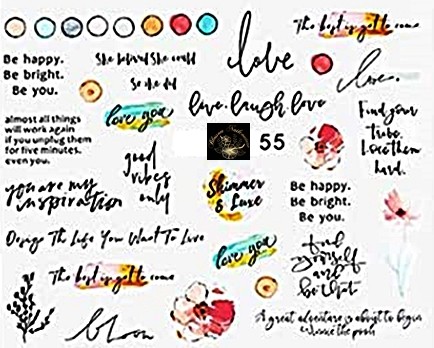 The best is yet to come
Be happy.
Be bright.
Be you.
She believed She could
So she did
love
love.
almost all things
will work again
if you unplug them
for five minutes.
even you.
love you
live. laugh. love
Find your
tribe.
Love them
hard.
55
good
vibes
only
you are my
inspiration
Shimmer
& Luxe
Be happy.
Be bright.
Be you.
Design The Life You Want To Live
love you
find
yourself
and
be that
The best is yet to come
bloom
A great adventure is about to begin